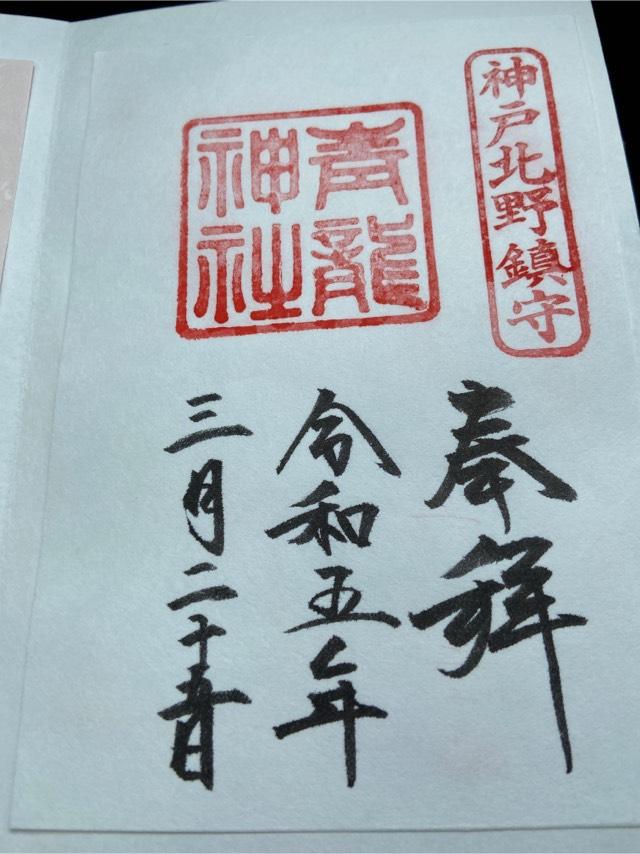 神戸北野鎮守
奉拝
青龍
神社
令和五年
三月二十五日